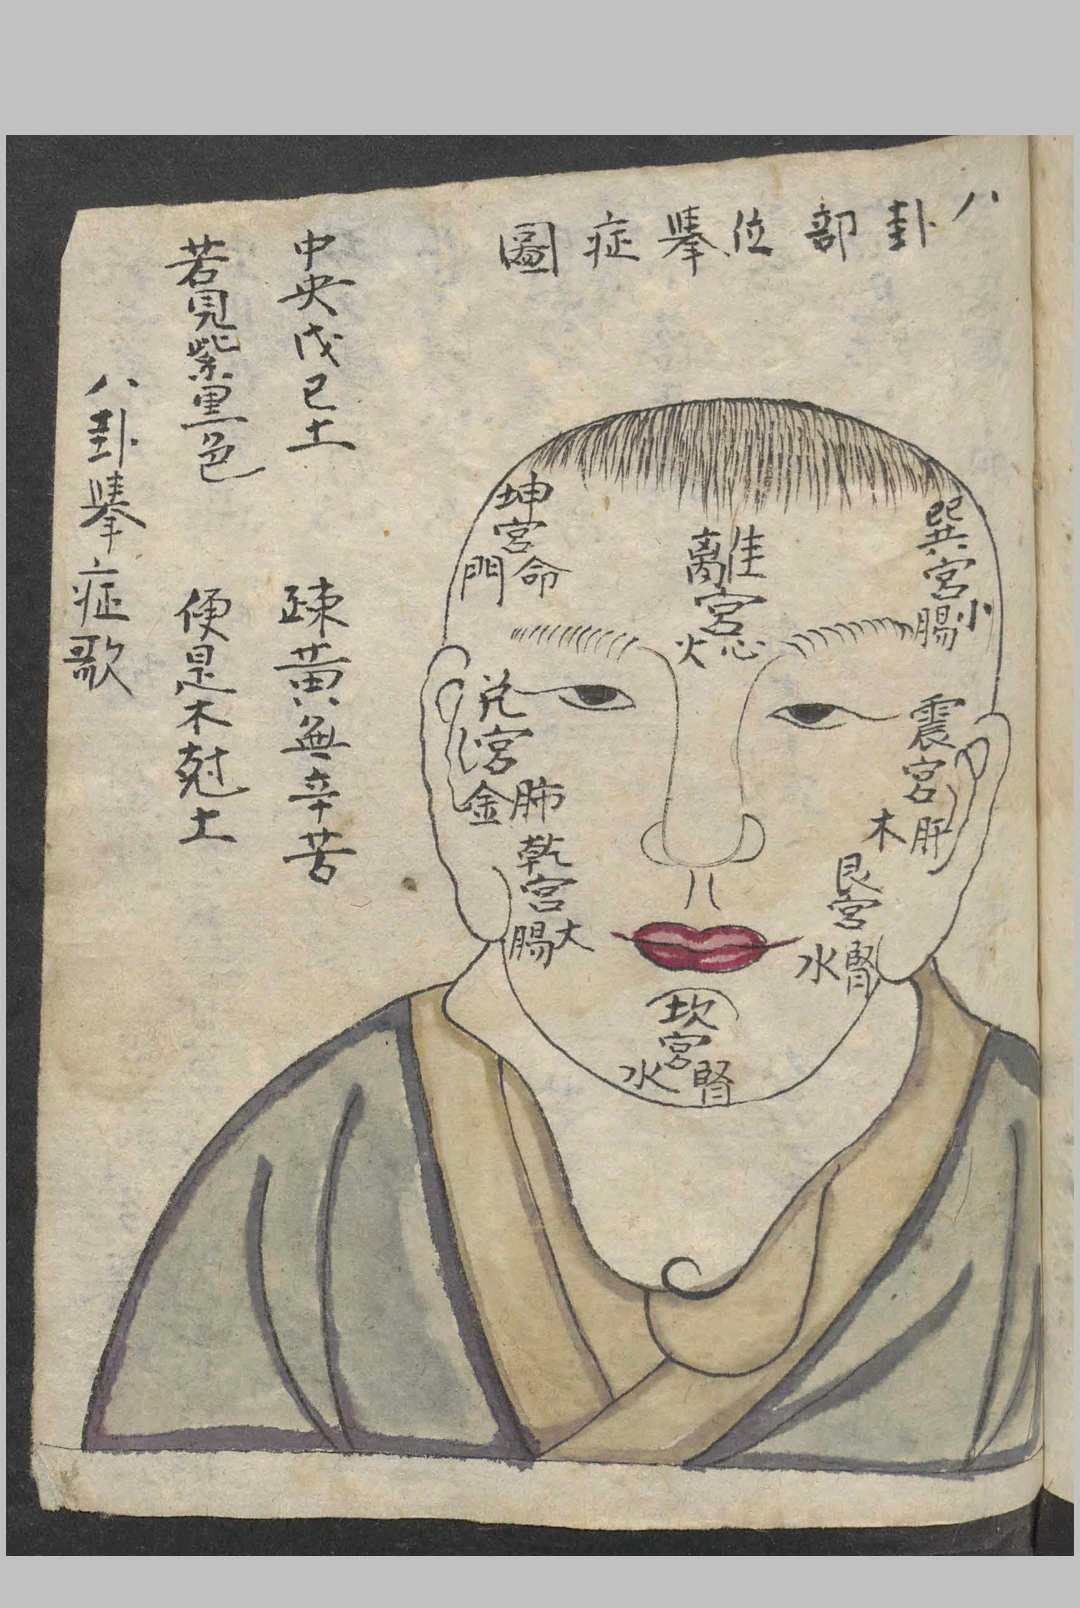 八卦部位舉症圖
巽宮
小腸
震宮
肝木
艮宮
腎水
離宮
心火
坎宮
腎水
坤宮
命門
兌宮
肺金
乾宮
大腸
中央戊己土 疎黃無辛苦
若見紫黑色 便是木尅土
八卦舉症歌